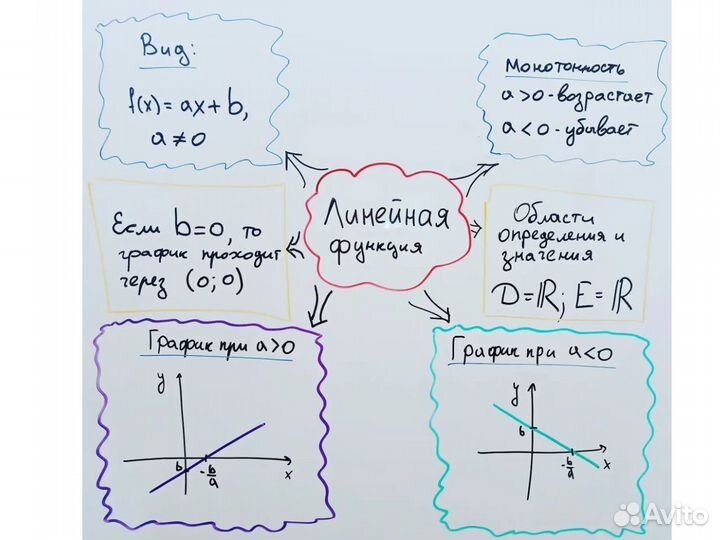 Вид:
f(x) = ax + b,
a ≠ 0
Монотонность
a > 0 - возрастает
a < 0 - убывает
Линейная
функция
Если b = 0, то
график проходит
через (0; 0)
Области
определения и
значения
D = ℝ; E = ℝ
График при a > 0
y
b
-b/a
x
График при a < 0
y
b
-b/a
x
Avito